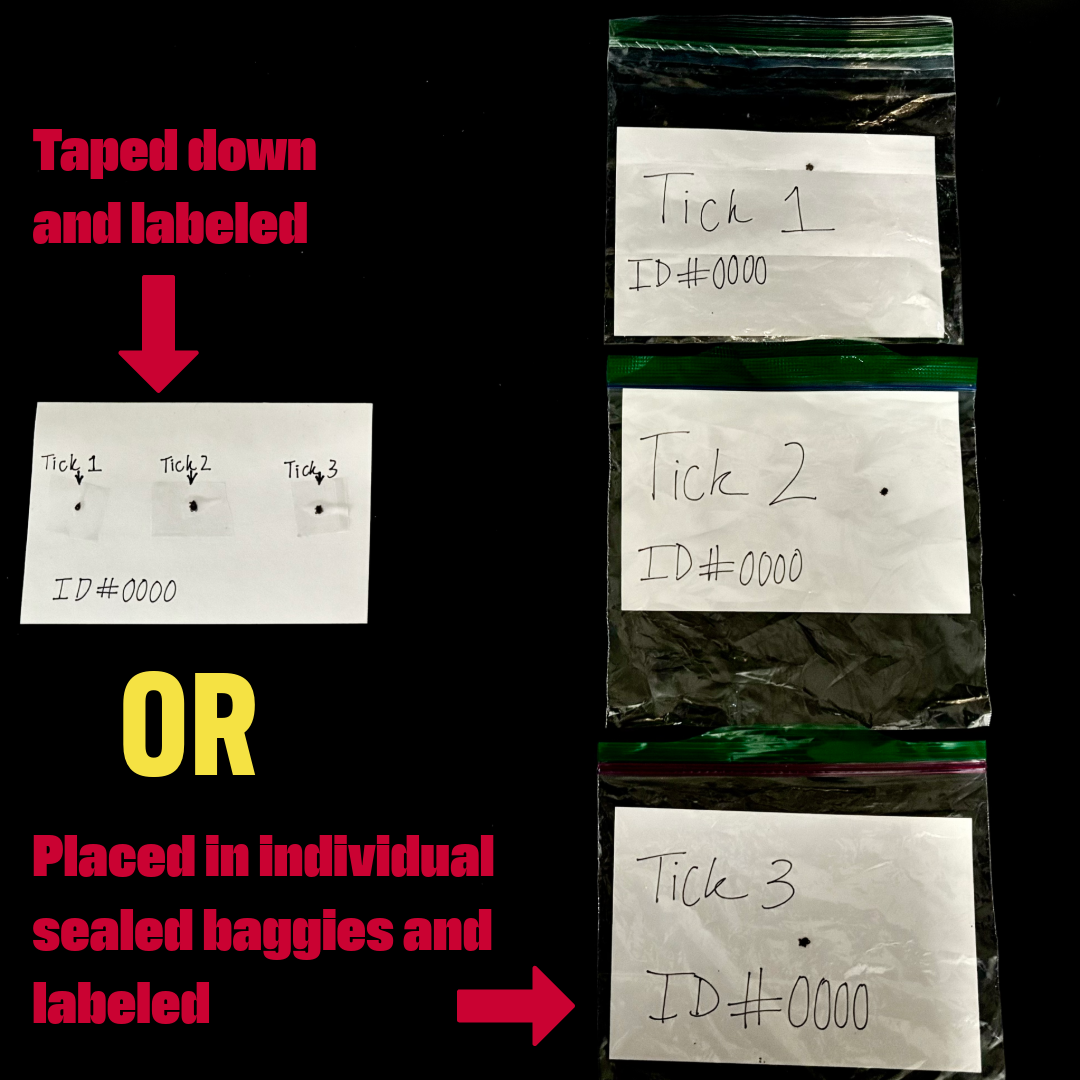 Taped down
and labeled
Tick 1 Tick 2 Tick 3
ID#0000
OR
Placed in individual
sealed baggies and
labeled
Tick 1
ID#0000
Tick 2
ID#0000
Tick 3
ID#0000